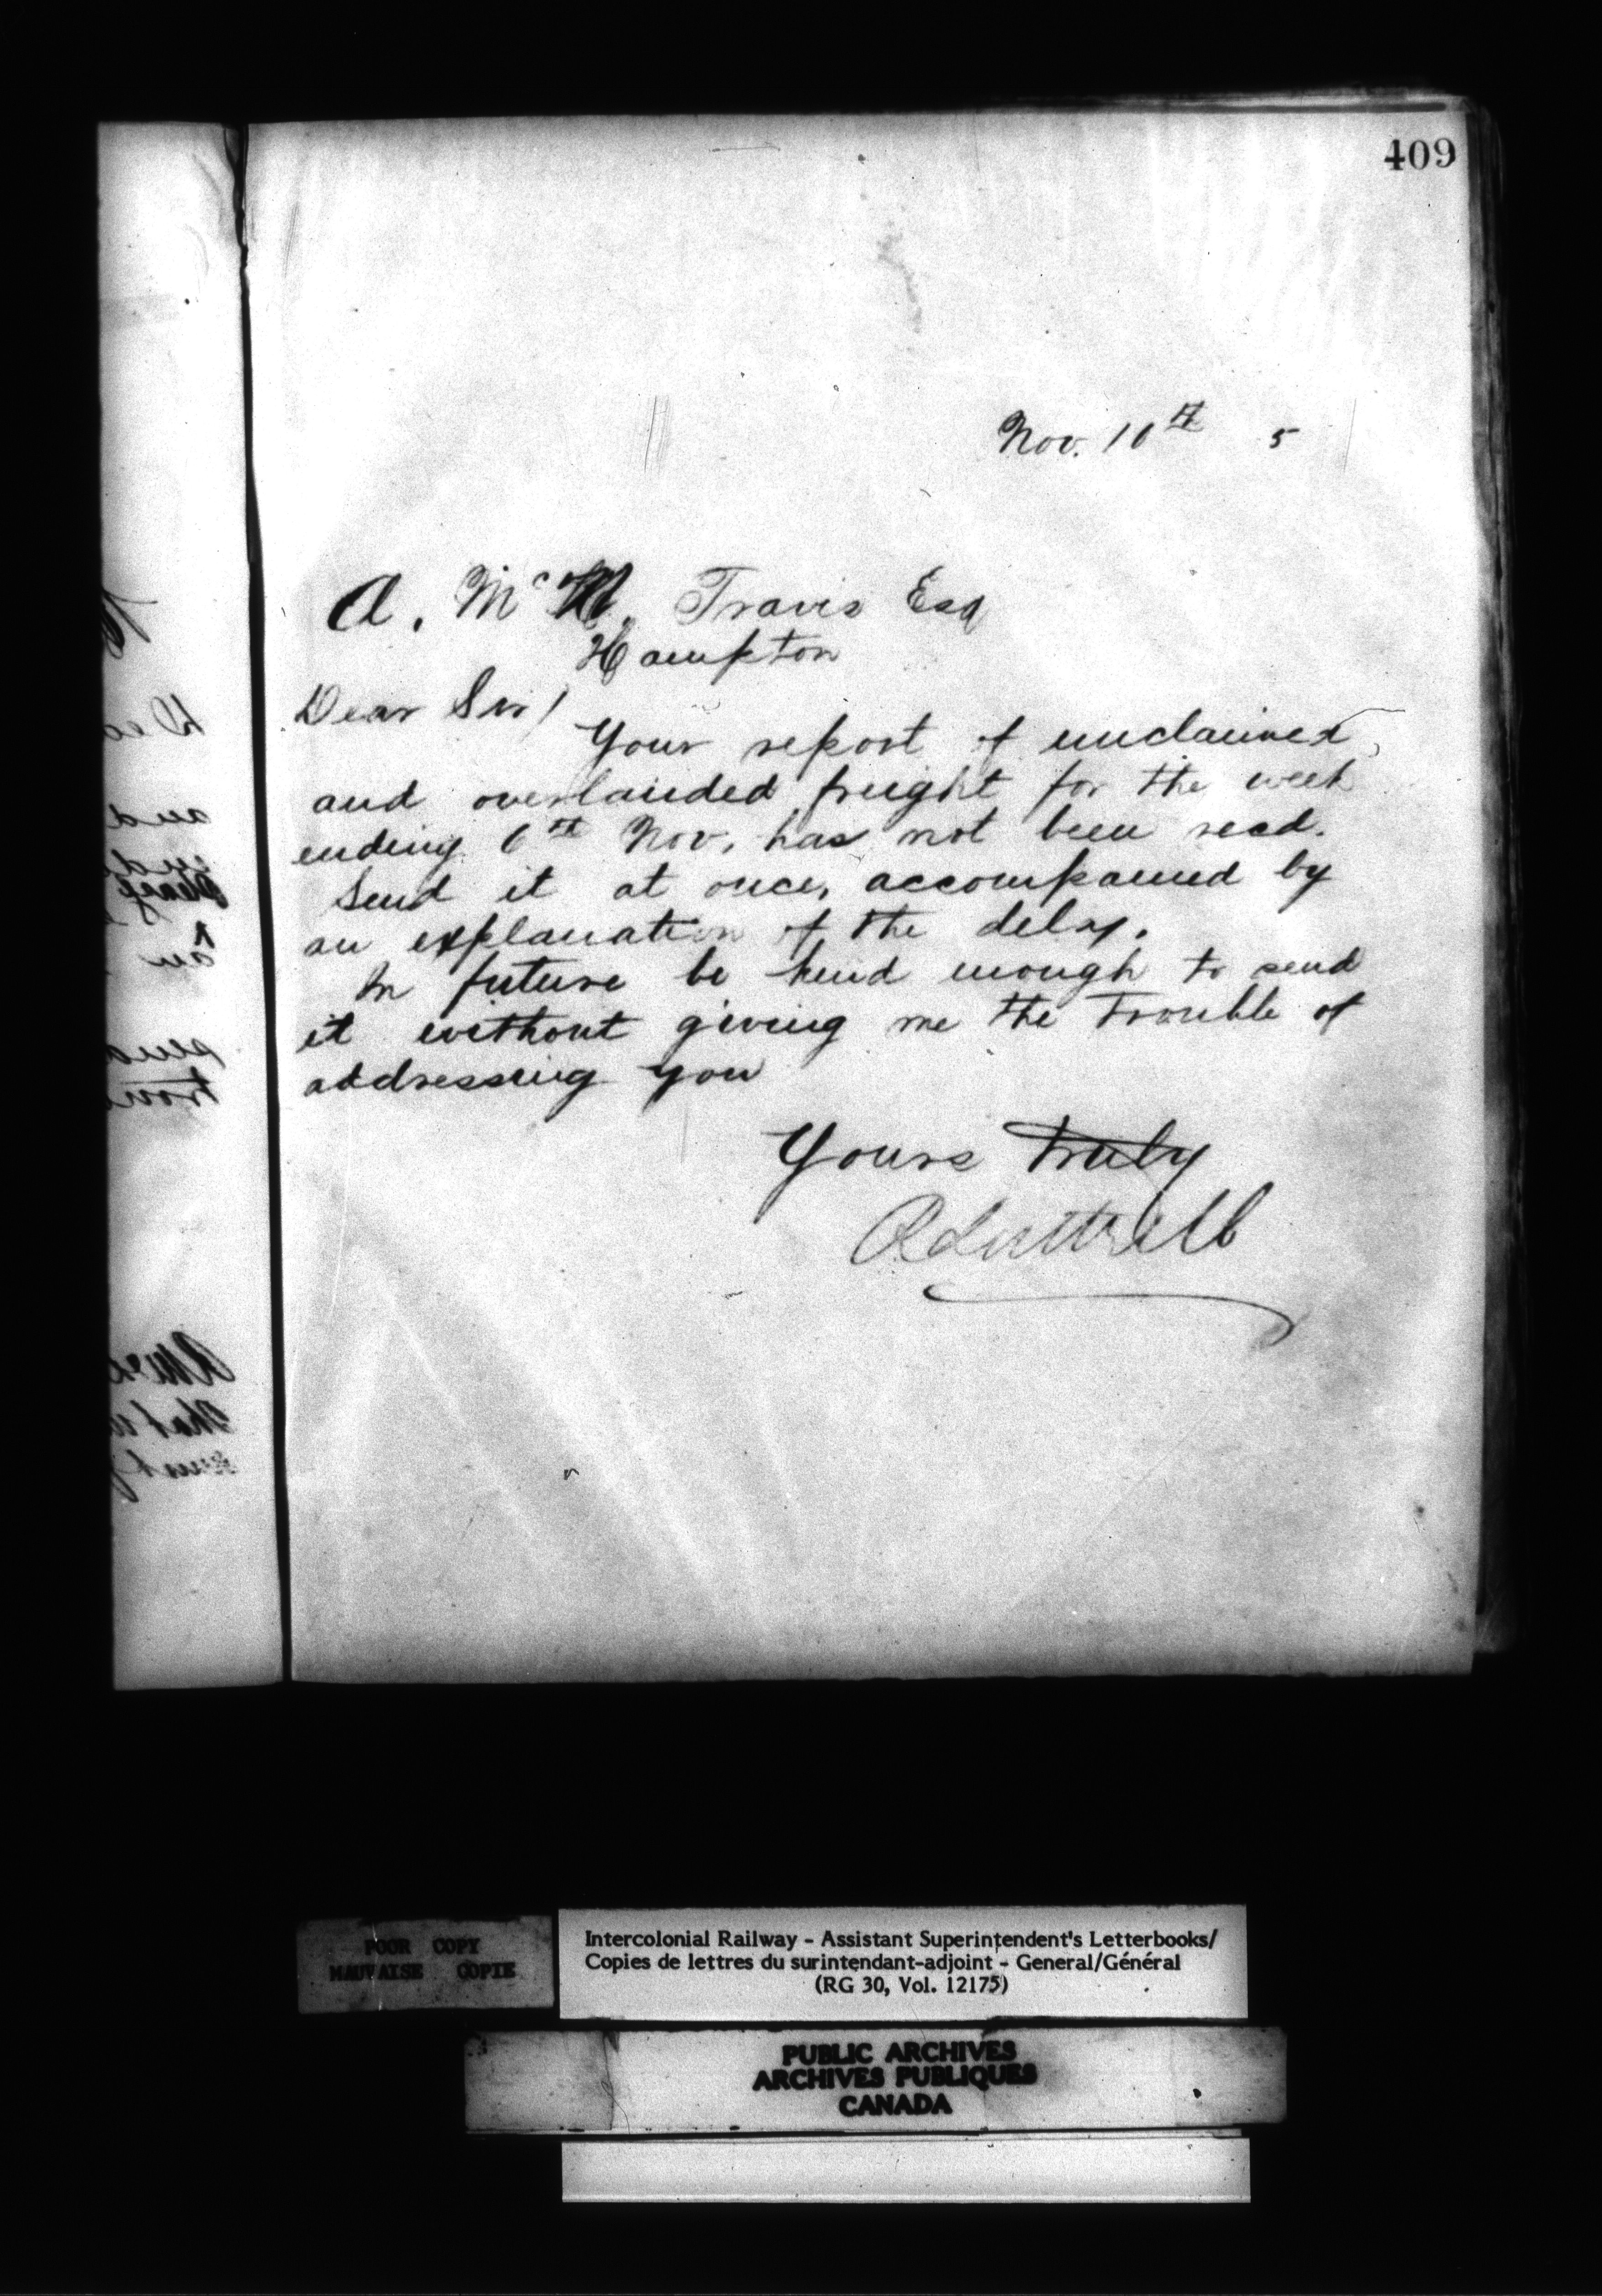 409
Nov. 10th 5
A. McN. Travis Esq
Hampton
Dear Sir/
Your report of unclaimed
and overlanded freight for the week
ending 6th Nov. has not been recd.
Send it at once, accompanied by
an explanation of the delay.
In future be kind enough to send
it without giving me the trouble of
addressing you
Yours truly
A Luttrell
POOR COPY
MAUVAISE COPIE
Intercolonial Railway - Assistant Superintendent's Letterbooks/
Copies de lettres du surintendant-adjoint - General/Général
(RG 30, Vol. 12175)
PUBLIC ARCHIVES
ARCHIVES PUBLIQUES
CANADA